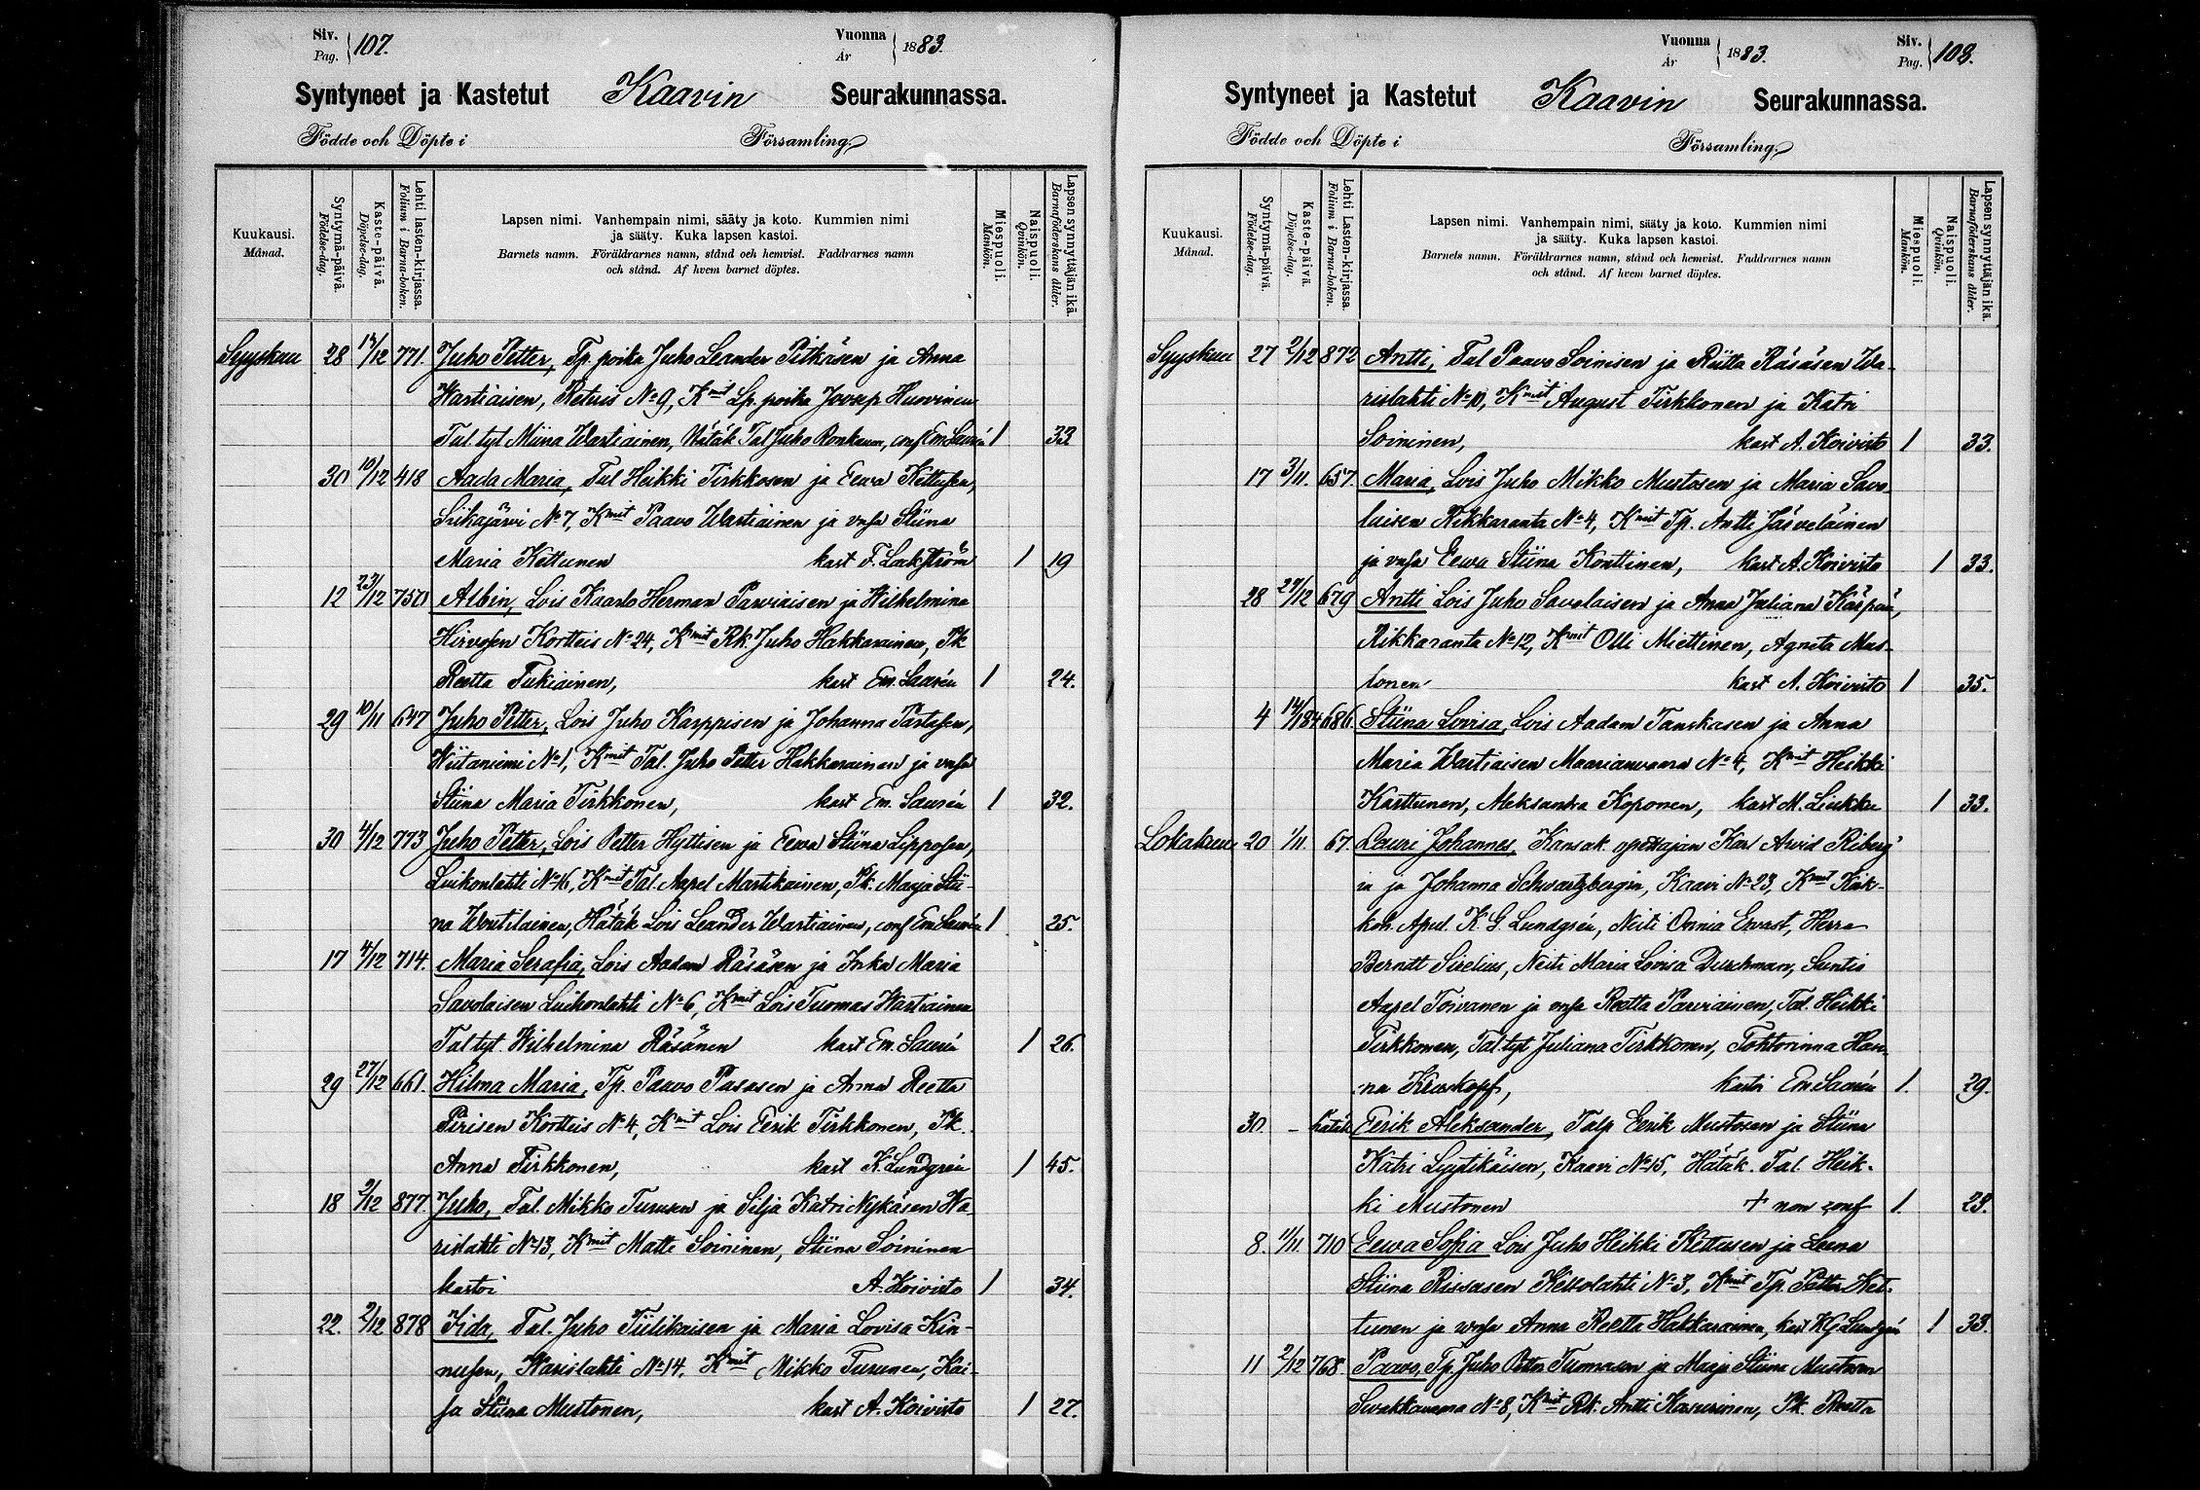 Siv. Pag. 107. Vuonna År 1883.
Syntyneet ja Kastetut Kaavin Seurakunnassa.
Födde och Döpte i Församling.
Kuukausi. Månad.
Syntymä-päivä. Födelse-dag.
Kaste-päivä. Döpelse-dag.
Lehti lasten-kirjassa. Folium i Barna-boken.
Lapsen nimi. Vanhempain nimi, sääty ja koto. Kummien nimi
ja sääty. Kuka lapsen kastoi.
Barnets namn. Föräldrarnes namn, stånd och hemvist. Faddrarnes namn
och stånd. Af hvem barnet döptes.
Miespuoli. Mankön.
Naispuoli. Qvinkön.
Lapsen synnyttäjän ikä. Barnaföderskans ålder.
Syyskuu 28 771. Juho Petter, Tp. poika Juho Leander Pitkäsen ja Anna
Wartiaisen, Retuis No 9, Kmit Lp. poika Huovinen
Tal. tyt Miina Wartiainen, Hätäk Tal Juho Ronkanen, conf Em. Saurén 1 33
30 10/12 418 Aada Maria, Tal Heikki Tirkkosen ja Eewa Kettusen,
Siikajärvi No 7, Kmit Paavo Wartiainen ja vmsa Stiina
Maria Kettunen kast F. Lackström 1 19
12 23/12 750 Albin, Lois Kaarlo Herman Parviaisen ja Wilhelmina
Hirvosen Kortteis No 24, Kmit Rk. Juho Hakkarainen, Pk
Reetta Tukiainen, kast Em. Saurén 1 24.
29 10/11 647 Juho Petter, Lois Juho Karppisen ja Johanna Partasen,
Wiitaniemi No 1, Kmit Tal. Juho Petter Hakkarainen ja vmsa
Stiina Maria Tirkkonen, kast Em. Saurén 1 32.
30 4/12 773 Juho Petter, Lois Petter Hyttisen ja Eewa Stiina Lipposen,
Luikonlahti No 16, Kmit Tal. Aapel Martikainen, Pk. Marja Stii-
na Woutilainen, Hätäk Lois Leander Wartiainen, conf Em Saurén 1 25.
17 4/12 714. Maria Serafia, Lois Aadam Räsäsen ja Inka Maria
Savolaisen Luikonlahti No 6, Kmit Lois Tuomas Wartiainen
Tal tyt. Wilhelmina Räsänen kast Em. Saurén 1 26.
29 27/12 661. Hilma Maria, Tp. Paavo Pasasen ja Anna Reetta
Piirisen Kortteis No 4, Kmit Lois Eerik Tirkkonen, Pk.
Anna Tirkkonen, kast K. Lundgrén 1 45.
18 2/12 877. Juho, Tal. Mikko Turusen ja Silja Katri Nykäsen Wa-
rislahti No 13, Kmit Matte Soininen, Stiina Soininen
kastoi A. Koivisto 1 34.
22. 2/12 878 Iida, Tal. Juho Tiilikaisen ja Maria Lovisa Kin-
nusen, Warislahti No 14, Kmit Mikko Turunen, Kai-
sa Stiina Mustonen, kast A. Koivisto 1 27.
Vuonna År 1883. Siv. Pag. 108.
Syntyneet ja Kastetut Kaavin Seurakunnassa.
Födde och Döpte i Församling.
Kuukausi. Månad.
Syntymä-päivä. Födelse-dag.
Kaste-päivä. Döpelse-dag.
Lehti Lasten-kirjassa. Folium i Barna-boken.
Lapsen nimi. Vanhempain nimi, sääty ja koto. Kummien nimi
ja sääty. Kuka lapsen kastoi.
Barnets namn. Föräldrarnes namn, stånd och hemvist. Faddrarnes namn
och stånd. Af hvem barnet döptes.
Miespuoli. Mankön.
Naispuoli. Qvinkön.
Lapsen synnyttäjän ikä. Barnaföderskans ålder.
Syyskuu 27 2/12 872 Antti, Tal Paavo Soinisen ja Riitta Räsäsen Wa-
rislahti No 10, Kmit August Tirkkonen ja Katri
Soininen, kast A. Koivisto 1 33.
17 3/11. 657. Maria, Lois Juho Mikko Mustosen ja Maria Savo-
laisen Rikkaranta No 4, Kmit Tp. Antti Jääveläinen
ja vmsa Eewa Stiina Konttinen, kast A. Koivisto 1 33.
28 27/12 679 Antti Lois Juho Savolaisen ja Anna Juliana
Rikkaranta No 12, Kmit Olli Miettinen, Agneta Mus-
tonen kast A. Koivisto 1 35.
4 686. Stiina Lovisa, Lois Aadam Tanskasen ja Anna
Maria Wartiaisen Maarianvaara No 4, Kmit Heikki
Karttunen, Aleksandra Koponen, kast M. Liukku 1 33.
Lokakuu 20 1/11. 67. Lauri Johannes, Kansak. opettajan Karl Arvid Riberg-
in ja Johanna Schwartzbergin, Kaavi No 23, Kmit Kirk-
koh. Apul. K. G. Lundgrén, Neiti Onnia Ervast, Herra
Berndt Sirelius, Neiti Maria Lovisa Durchman, Suntio
Aapel Toivanen ja vmsa Reetta Parviainen, Tal. Heikki
Tirkkonen, Tal. tyt Juliana Tirkkonen, Tohtorinna Han-
na Kruskopf, kastoi Em. Saurén 1. 29.
30. - hätäk Eerik Aleksander, Talp Eerik Mustosen ja Stiina
Katri Lyytikäisen, Kaavi No 15, Hätäk. Tal. Heik-
ki Mustonen + non conf 1. 23.
8. 11/11. 710 Eewa Sofia Lois Juho Heikki Kettusen ja Leena
Stiina Rissasen Kessolahti No 3, Kmit Tp. Petter Ket-
tunen ja vmsa Anna Reetta Hakkarainen, kast K G Lundgrén 1 33.
11 2/12 768. Paavo, Tp. Juho Petter Tuomasen ja Marja Stiina Mustosen
Sivakkavaara No 8, Kmit Rk. Antti Kasurinen, Pk. Reetta